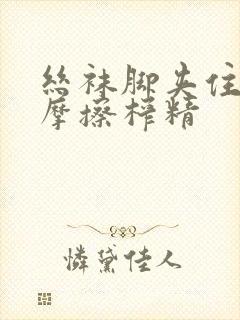 丝袜脚夹住
摩擦榨精
憐黛佳人